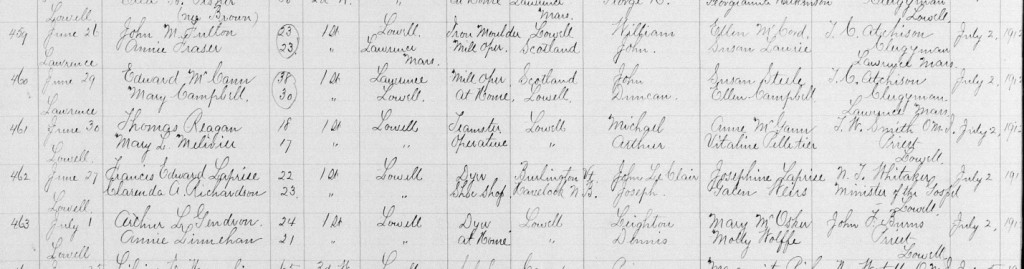 Lowell (née Brown) Mass. Clergyman Lowell
459 June 26 John M. Fulton 23 1st Lowell Iron Moulder Lowell William Ellen McCord T. C. Atchison July 2, 1912
Lawrence Annie Fraser 23 " Lawrence Mass. Mill Oper. Scotland John Susan Laurie Clergyman Lawrence Mass.
460 June 29 Edward McCann 38 1st Lawrence Mill Oper Scotland John Susan Steele T. C. Atchison July 2,
Lawrence Mary Campbell 30 " Lowell At Home, Lowell. Duncan Ellen Campbell Clergyman Lawrence Mass
461 June 30 Thomas Reagan 18 1st Lowell Teamster Lowell Michael Anne McGann T. W. Smith O.M.I. July 2, 1912
Lowell. Mary L. 17 " " Operative " Arthur Vitaline Pelletier Priest Lowell.
462 June 27 Francis Edward Laprise 22 1st Lowell Dyer Burlington Vt. John Le Clair Josephine Laprise N. T. Whitaker July 2, 191
Lowell. Clarenda A. Richardson 23 " " Shoe Shop Havelock N.B. Joseph Minister of the Gospel Lowell
463 July 1 Arthur L. Gendron 24 1st Lowell Dyer Lowell Leighton Mary John F. Burns July 2, 191
Lowell Annie Linnehan 21 " " at Home " Dennis Molly Wolffe Priest Lowell